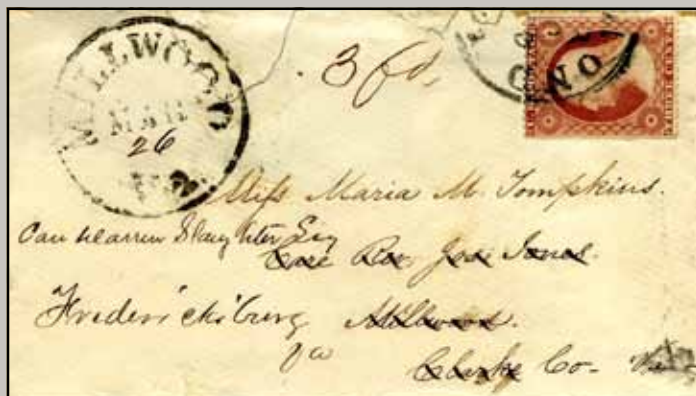 MILLWOOD
MAR
26
Va
3 fd,
Miss Maria M. Tompkins.
Care Warren Slaughter Esq
Care Rev. Jos. Jones.
Fredericksburg Millwood.
Va
Clarke Co- Va